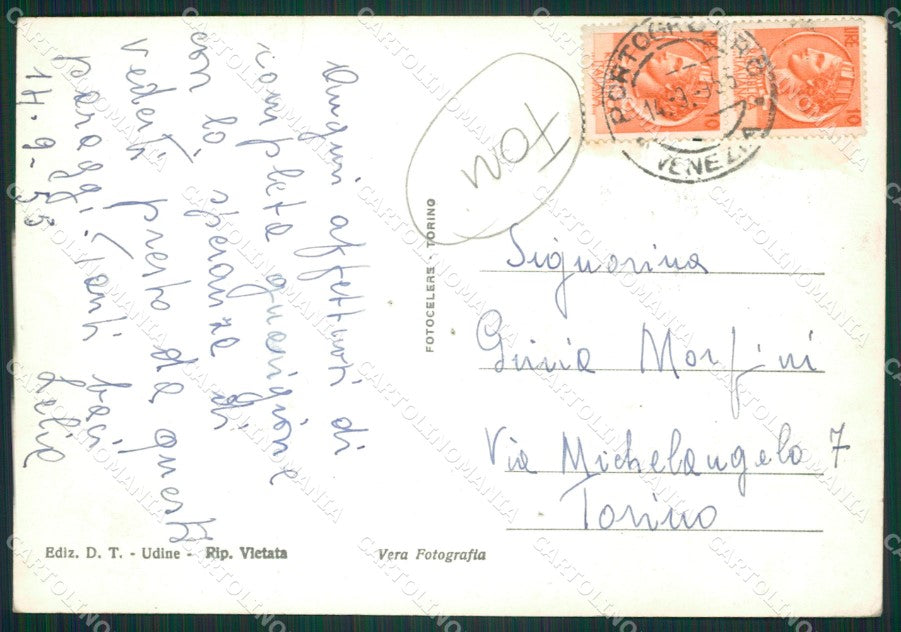 Auguri affettuosi di
completa guarigione
con la speranza di
vederti presto da questi
paraggi. Tanti baci
Lelia
14-9-55
TON
PORTOGRUARO
14.9.55
VENEZIA
LIRE 10
LIRE 10
FOTOCELERE - TORINO
Signorina
Morfini
Via Michelangelo 7
Torino
Ediz. D. T. - Udine - Rip. Vietata
Vera Fotografia
CARTOLINOMANIA